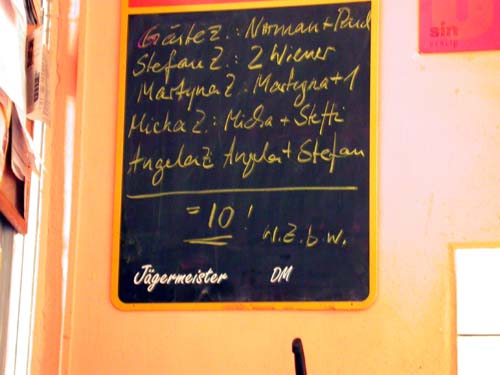 GästeZ.: Norman + Paul
StefanZ.: 2 Wiener
MartynaZ: Martyna + 1
MichaZ.: Micha + Steffi
AngelaZ Angela + Stefan
= 10!
w.z.b.w.
Jägermeister DM
sin